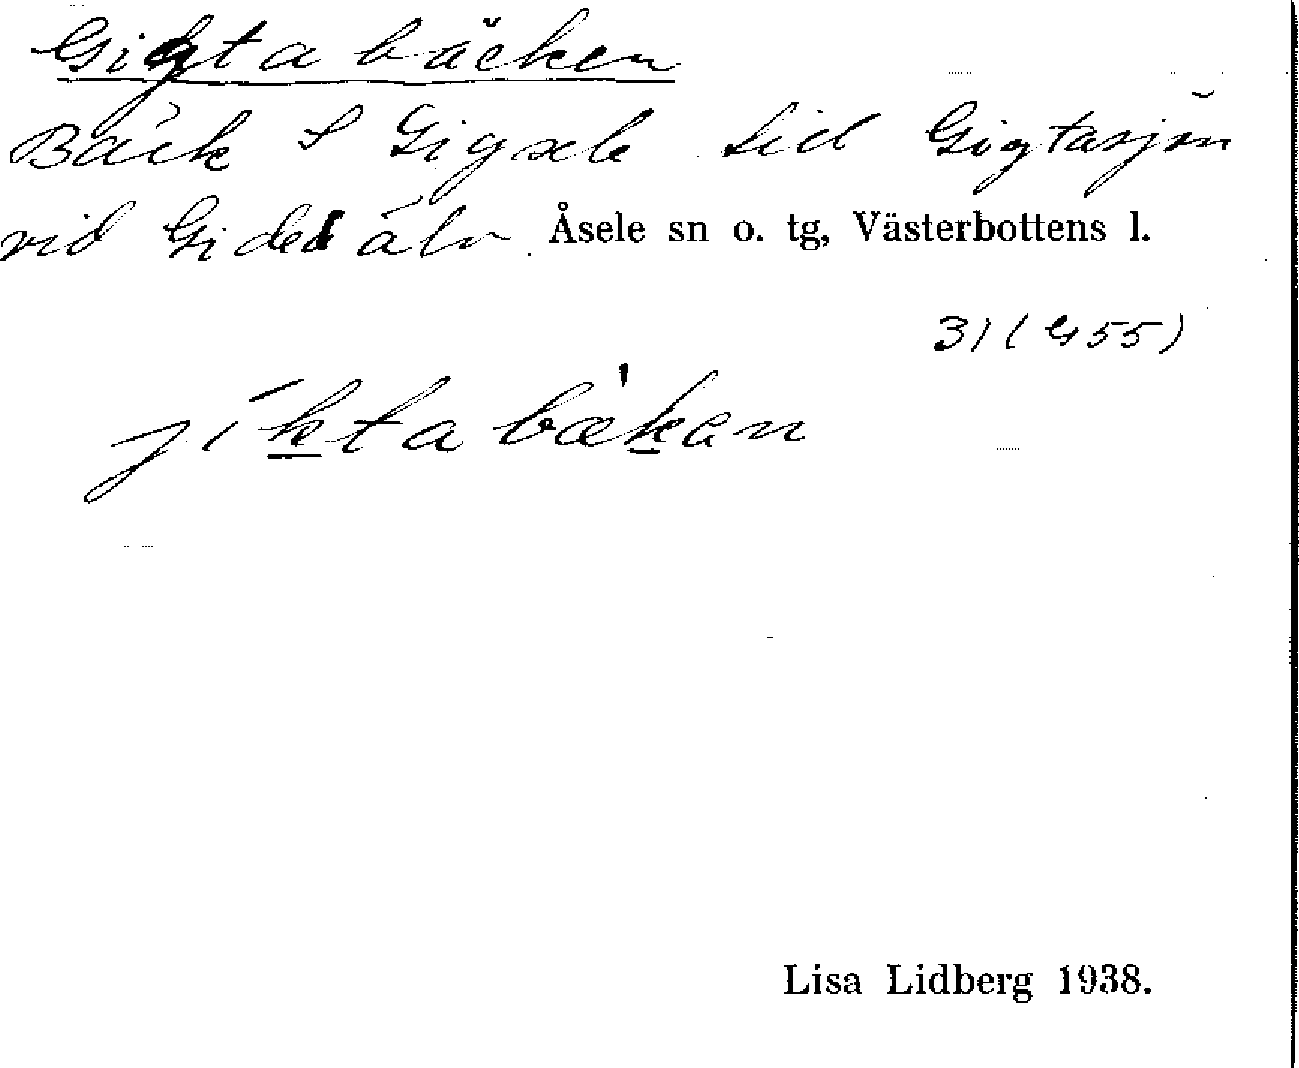 Gigtabäcken
Bäck S Gigsele till Gigtasjön
vid Gideälv. Åsele sn o. tg, Västerbottens l.
31 (G 55)
jiktabækan
Lisa Lidberg 1938.